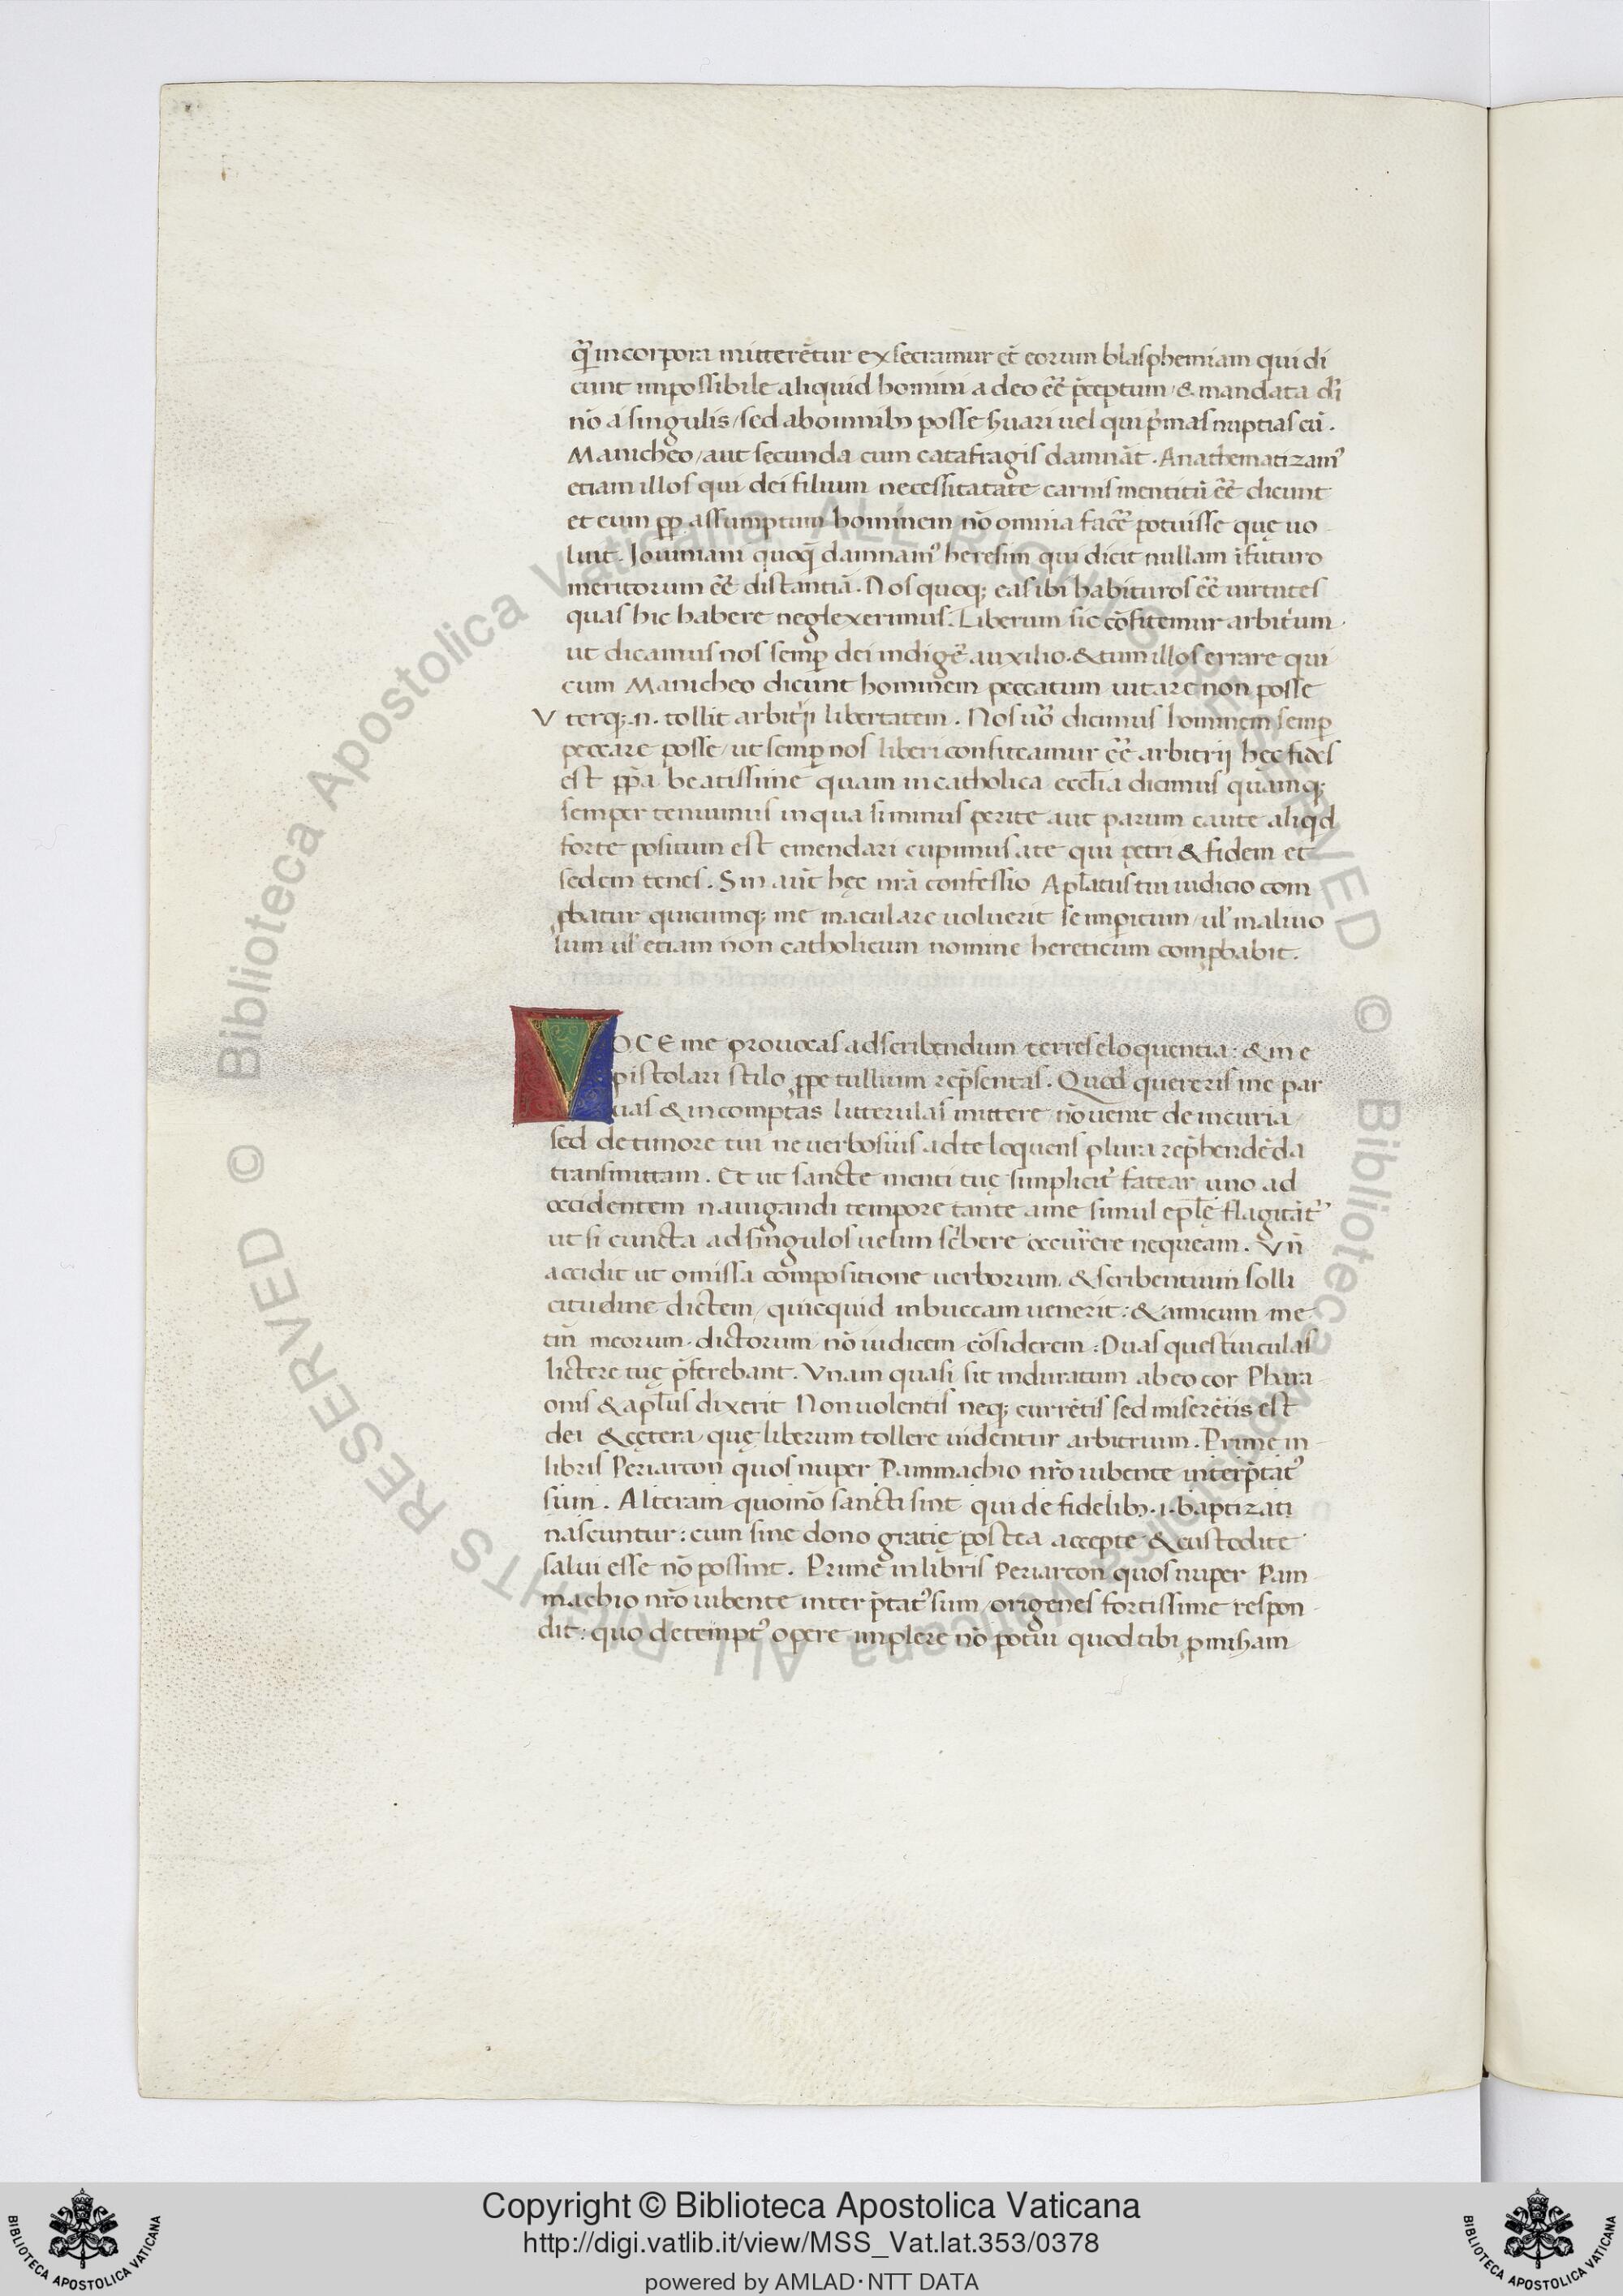 qͣ̄ in corpora mitterētur exsecramur et̄ eorum blasphemiam qui di
cunt impossibile aliquid homini a deo eē̄ p̄ceptum / & mandata dī
nō a singulis / sed ab omnibꝫ posse ẜuari uel qui p̄mas nuptias cū .
Manicheo / aut secunda cum catafragis damnāt . Anathematizamꝰ
etiam illos qui dei filium necessitatate carnis mentitū eē̄ dicunt
et eum ꝓp assumptum hominem nō omnia facē̄ potuisse quę uo
luit . Iouiniani quoqꝫ damnamꝰ heresim qui dicit nullam ī futuro
meritorum eē̄ distantiā . Nos quoqꝫ eas ibi habituros eē̄ uirtutes
quas hic habere neglexerimus . Liberum sic cōfitemur arbitͥum .
ut dicamus nos semꝑ dei indigē̄ auxilio . & tum illos errare qui
cum Manicheo dicunt hominem peccatum uitare non posse
Vterqꝫ .n. tollit arbitͥij libertatem . Nos uō dicimus hominem semꝑ
peccare posse / ut semꝑ nos liberi confiteamur eē̄ arbitrij hęc fides
est p̄pa beatissime quam in catholica eccl̄ia dicimus quamqꝫ
semper tenuimus in qua si minus perite aut parum caute aliqͥd
forte positum est emendari cupimus a te qui petri & fidem et
sedem tenes . Sin aūt hęc nr̄a confessio Apl̄atus tui iudicio com
ꝓbatur quicumqꝫ me maculare uoluerit se imꝑitum / ul̄ maliuo
lum ul̄ etiam non catholicum nomine hereticum comꝓbabit .
VOCE me prouocas ad scribendum terres eloquentia : & in e
pistolari stilo ꝓpe tullium rep̄sentas . Quod quereris me par
uas & incomptas litterulas mittere nō uenit de incuria /
sed de timore tui ne uerbosius ad te loquens plura rep̄hendēda
transmittam . Et ut sancte menti tuę simplicitꝰ fatear uno ad
occidentem nauigandi tempore tante a me simul epl̄ę flagitātꝰ
ut si cuncta ad singulos uelim scͥbere occurrere nequeam . Vn̄
accidit ut omissa compositione uerborum . & scribentium solli
citudine dictem / quicquid in buccam uenerit : & amicum me
tm̄ meorum dictorum nō iudicem cōsiderem : Duas questiuiculas
lictere tuę p̄ferebant . Vnam quasi sit induratum ab eo cor Phara
onis & apl̄us dixerit Non uolentis neqꝫ currētis sed miserētis est
dei & cętera / quę liberum tollere uidentur arbitrium . Prime in
libris Periarcon quos nuper Pammachio nr̄o iubente interp̄tatꝰ
sum . Alteram quoim̄o sancti sint qui de fidelibꝫ .i. baptizati
nascuntur : cum sine dono gratię postea accepte & custodite
salui esse nō possint . Prime in libris Periarcon quos nuper Pam
machio nr̄o iubente interp̄tatꝰ sum / origenes fortissime respon
dit : quo detemptꝰ opere implere nō potui quod tibi ꝓmiẜam
Copyright © Biblioteca Apostolica Vaticana
http://digi.vatlib.it/view/MSS_Vat.lat.353/0378
powered by AMLAD·NTT DATA
BIBLIOTECA APOSTOLICA VATICANA
BIBLIOTECA APOSTOLICA VATICANA
© Biblioteca Apostolica Vaticana ALL RIGHTS RESERVED © Biblioteca Apostolica Vaticana ALL RIGHTS RESERVED